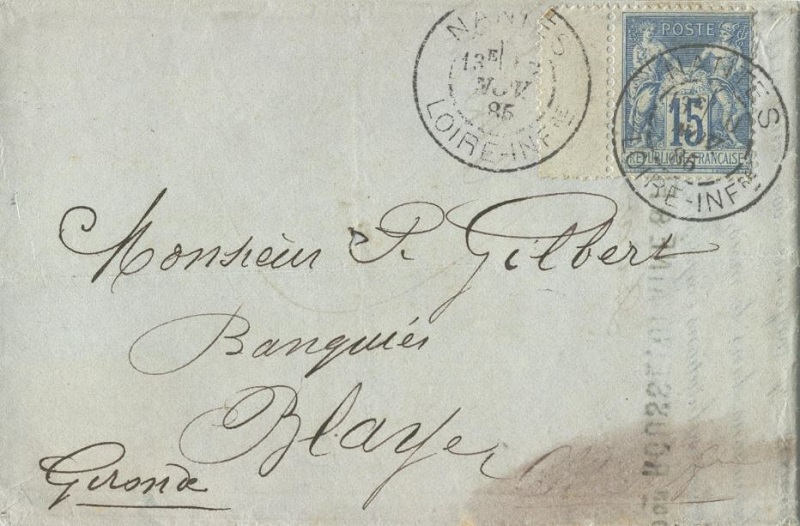 NANTES
13E
NOV.
85
LOIRE-INFRE
POSTE
15
REPUBLIQUE FRANCAISE
NANTES
85
LOIRE-INFRE
Monsieur P. Gilbert
Banquier
Blaye
Gironde